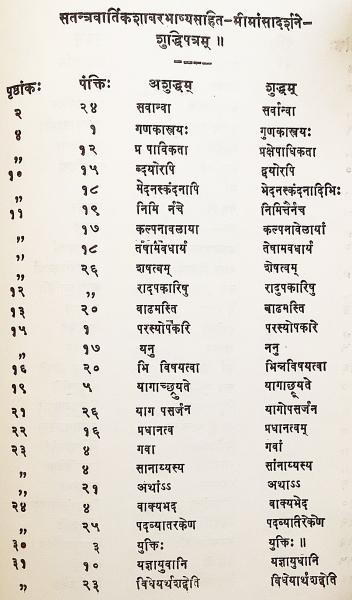 सतन्त्रवार्तिकशाबरभाष्यसहित-मीमांसादर्शने-
शुद्धिपत्रम् ॥
पृष्ठांकः पंक्तिः अशुद्धम् शुद्धम्
२ २४ सवान्वा सर्वान्वा
४ १ गणकास्त्रयः गुणकास्त्रयः
„ १२ प्र पाविकता प्रक्षेपाधिकता
१० १५ ब्दयोरपि द्वयोरपि
„ १८ मेदनस्कंदनापि भेदनस्कंदनादिभिः
११ १९ निमि र्नचे निमित्तैर्नच
„ १७ कल्पनावलाया कल्पनावेलायां
„ १८ तेषामेवधार्य तेषामवधार्य
„ २६ शषत्वम् शेषत्वम्
१२ „ रादुपकारिषु रादुपकारिषु
१३ २० वाढमस्ति बाढमस्ति
१५ १ परस्योपेकरि परस्योपकारे
„ १७ यनु ननु
१६ २० भि विषयत्वा भिन्नविषयत्वा
१९ ५ यागाच्छ्रूयते यागाच्छ्रूयते
२१ २६ याग पसर्जन यागोपसर्जन
२२ १६ प्रधानत्व प्रधानत्वम्
२३ ४ गवा गवां
„ ४ सानाय्यस्य सांनाय्यस्य
„ २१ अथांऽऽ अर्थाऽऽ
२४ ४ वाक्यभद वाक्यभेद
„ २५ पदव्यातरकेण पदव्यातिरेकेण
३० ३ युक्तिः युक्तिः ॥
३१ १० यज्ञायुवानि यज्ञायुधानि
„ २३ विधेयर्थशद्वेति विधेयार्थशद्वेति